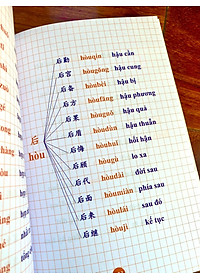 后勤 hòuqín hậu cần
后宫 hòugōng hậu cung
后备 hòubèi hậu bị
后方 hòufāng hậu phương
后果 hòuguǒ hậu quả
后盾 hòudùn hậu thuẫn
后悔 hòuhuǐ hối hận
后顾 hòugù lo xa
后代 hòudài đời sau
后面 hòumiàn phía sau
后来 hòulái sau đó
后继 hòujì kế tục
后
hòu